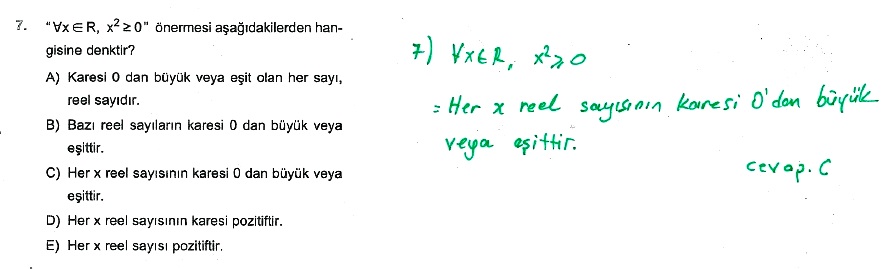 7. "∀x ∈ R, x² ≥ 0" önermesi aşağıdakilerden han-
gisine denktir?
A) Karesi 0 dan büyük veya eşit olan her sayı,
reel sayıdır.
B) Bazı reel sayıların karesi 0 dan büyük veya
eşittir.
C) Her x reel sayısının karesi 0 dan büyük veya
eşittir.
D) Her x reel sayısının karesi pozitiftir.
E) Her x reel sayısı pozitiftir.
7) ∀x∈R, x²≥0
= Her x reel sayısının karesi 0'dan büyük
veya eşittir.
cevap. C